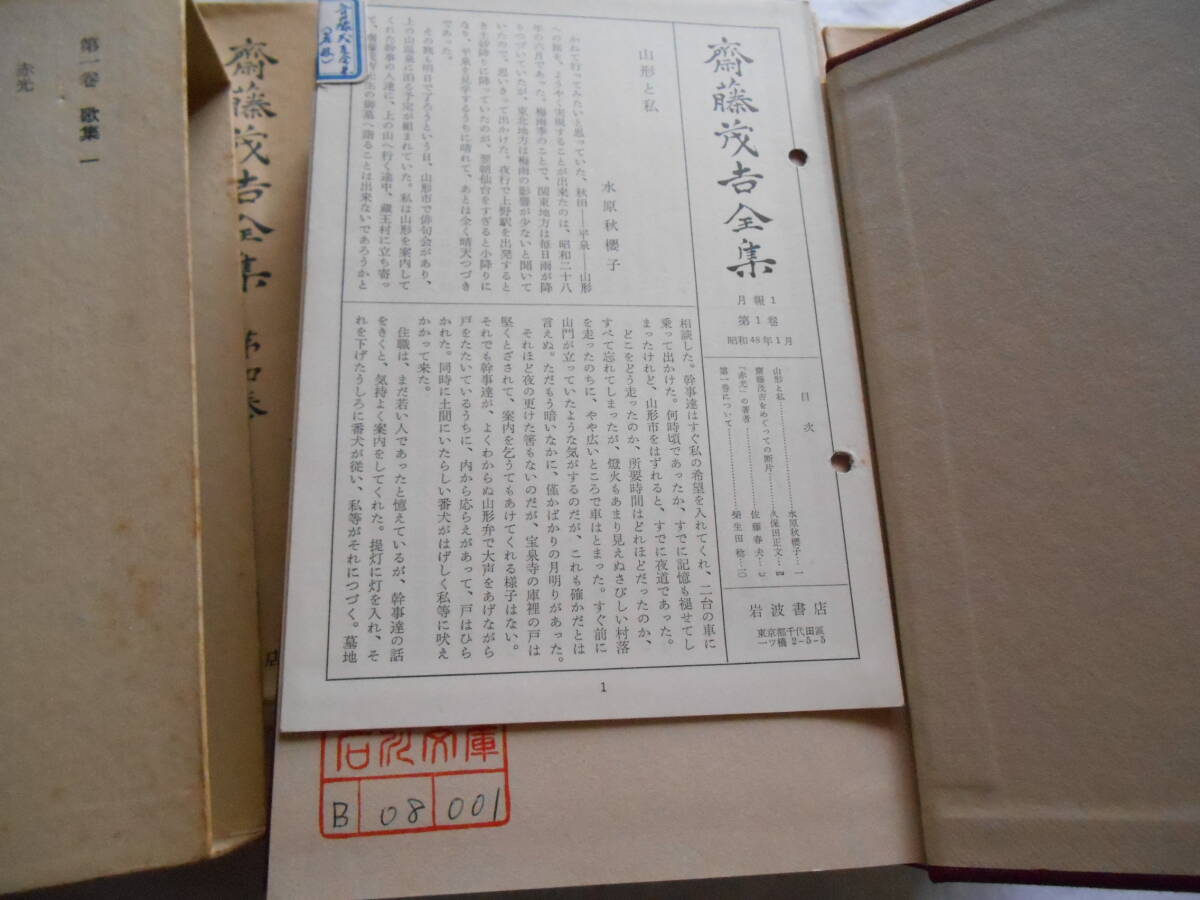 第一巻 歌集 一
赤光
齋藤茂吉全集
店
齋藤茂吉全集
月報1
第1巻
昭和48年1月
目次
山形と私……水原秋櫻子…一
齋藤茂吉をめぐっての断片……久保田正文…四
「赤光」の著者……佐藤春夫…七
第一巻について……柴生田稔…一〇
岩波書店
東京都千代田区
一ツ橋2-5-5
山形と私
水原秋櫻子
かねて行ってみたいと思っていた、秋田――平泉――山形
への旅を、ようやく実現することが出来たのは、昭和二十八
年の六月であった。梅雨季のことで、関東地方は毎日雨が降
りつづいていたが、東北地方は梅雨の影響が少ないと聞いて
いたので、思いきって出かけた。夜行で上野駅を出発すると
き土砂降りに降っていたのが、翌朝仙台をすぎると小降りに
なり、平泉を見学するうちに晴れて、あとは全く晴天つづき
であった。
その旅も明日で了ろうという日、山形市で俳句会があり、
上の山温泉に泊る予定が組まれていた。私は山形を案内して
くれた幹事の人達に、上の山へ行く途中、蔵王村に立ち寄っ
の御墓へ詣ることは出来ないであろうかと
相談した。幹事達はすぐ私の希望を入れてくれ、二台の車に
乗って出かけた。何時頃であったか、すでに記憶も褪せてし
まったけれど、山形市をはずれると、すでに夜道であった。
どこをどう走ったのか、所要時間はどれほどだったのか、
すべて忘れてしまったが、燈火もあまり見えぬさびしい村落
を走ったのちに、やや広いところで車はとまった。すぐ前に
山門が立っていたような気がするのだが、これも確かだとは
言えぬ。ただもう暗いなかに、僅かばかりの月明りがあった。
それほど夜の更けた筈もないのだが、宝泉寺の庫裡の戸は
堅くとざされて、案内を乞うてもあけてくれる様子はない。
それでも幹事達が、よくわからぬ山形弁で大声をあげながら
戸をたたいているうちに、内から応らえがあって、戸はひら
かれた。同時に土間にいたらしい番犬がはげしく私等に吠え
かかって来た。
住職は、まだ若い人であったと憶えているが、幹事達の話
をきくと、気持よく案内をしてくれた。提灯に灯を入れ、そ
れを下げたうしろに番犬が従い、私等がそれにつづく。墓地
1
文庫
B 08 001